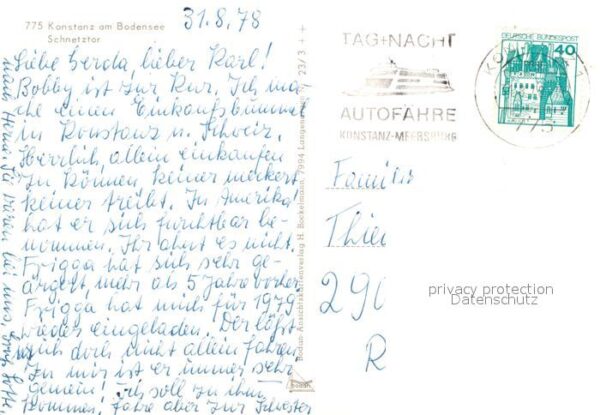 775 Konstanz am Bodensee
Schnetztor
31.8.78
Liebe Gerda, lieber Karl!
Bobby ist zur Kur. Ich ma
che einen Einkaufsbummel
in Konstanz u. Schweiz.
Herrlich, allein einkaufen
zu können, keiner meckert
keiner treibt. In Amerika
hat er sich furchtbar be-
nommen. Ihr ahnt es nicht.
Frigga hat sich sehr ge-
ärgert, mehr als 5 Jahre vorher
Frigga hat mich für 1979
wieder eingeladen. Der läßt
mich doch nicht allein fahren
Zu mir ist er immer sehr
gemein! Ich soll zu ihm
kommen, fahre aber zur Schwester
nach Herne.
bei uns,
Bodan-Ansichtskartenverlag H. Bockelmann, 7994 Langenargen
23/3 ++
TAG+NACHT
AUTOFÄHRE
KONSTANZ-MEERSBURG
DEUTSCHE BUNDESPOST
40
775
Familie
Thie
290
R
privacy protection
Datenschutz